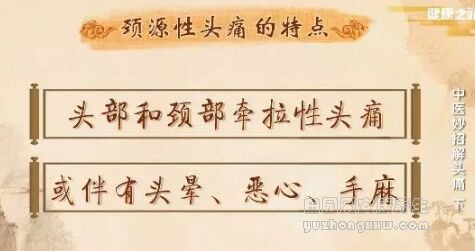 健康之
颈源性头痛的特点
头部和颈部牵拉性头痛
或伴有头晕、恶心、手麻
中医妙招解头痛 下
yuzhongxw.com